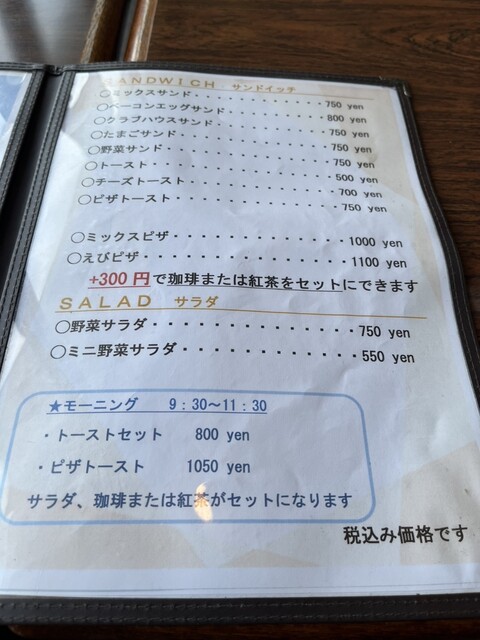 SANDWICH サンドイッチ
○ミックスサンド・・・・・・・・・・・・・750 yen
○ベーコンエッグサンド・・・・・・・・・・800 yen
○クラブハウスサンド・・・・・・・・・・・750 yen
○たまごサンド・・・・・・・・・・・・・・750 yen
○野菜サンド・・・・・・・・・・・・・・・750 yen
○トースト・・・・・・・・・・・・・・・・500 yen
○チーズトースト・・・・・・・・・・・・・700 yen
○ピザトースト・・・・・・・・・・・・・・750 yen
○ミックスピザ・・・・・・・・・・・・・・1000 yen
○えびピザ・・・・・・・・・・・・・・・・1100 yen
+300円で珈琲または紅茶をセットにできます
SALAD サラダ
○野菜サラダ・・・・・・・・・・・・・750 yen
○ミニ野菜サラダ・・・・・・・・・・・550 yen
★モーニング 9：30～11：30
・トーストセット 800 yen
・ピザトースト 1050 yen
サラダ、珈琲または紅茶がセットになります
税込み価格です